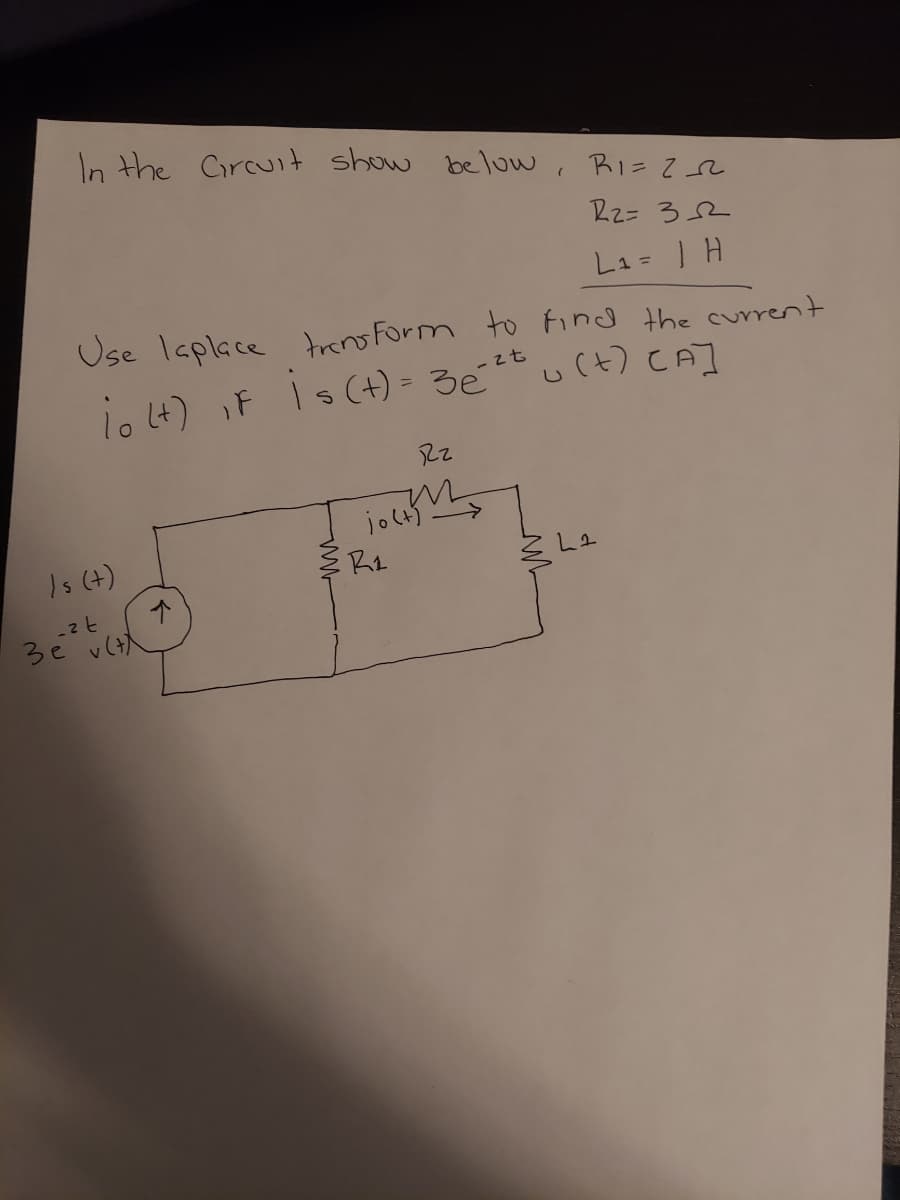 In the Circuit show below, R1 = 2 Ω
R2 = 3 Ω
L1 = 1 H
Use laplace transform to find the current
io(t) if is(t) = 3e^-2t u(t) [A]
R2
io(t) →
R1
L1
Is(t)
↑
3e^-2t u(t)